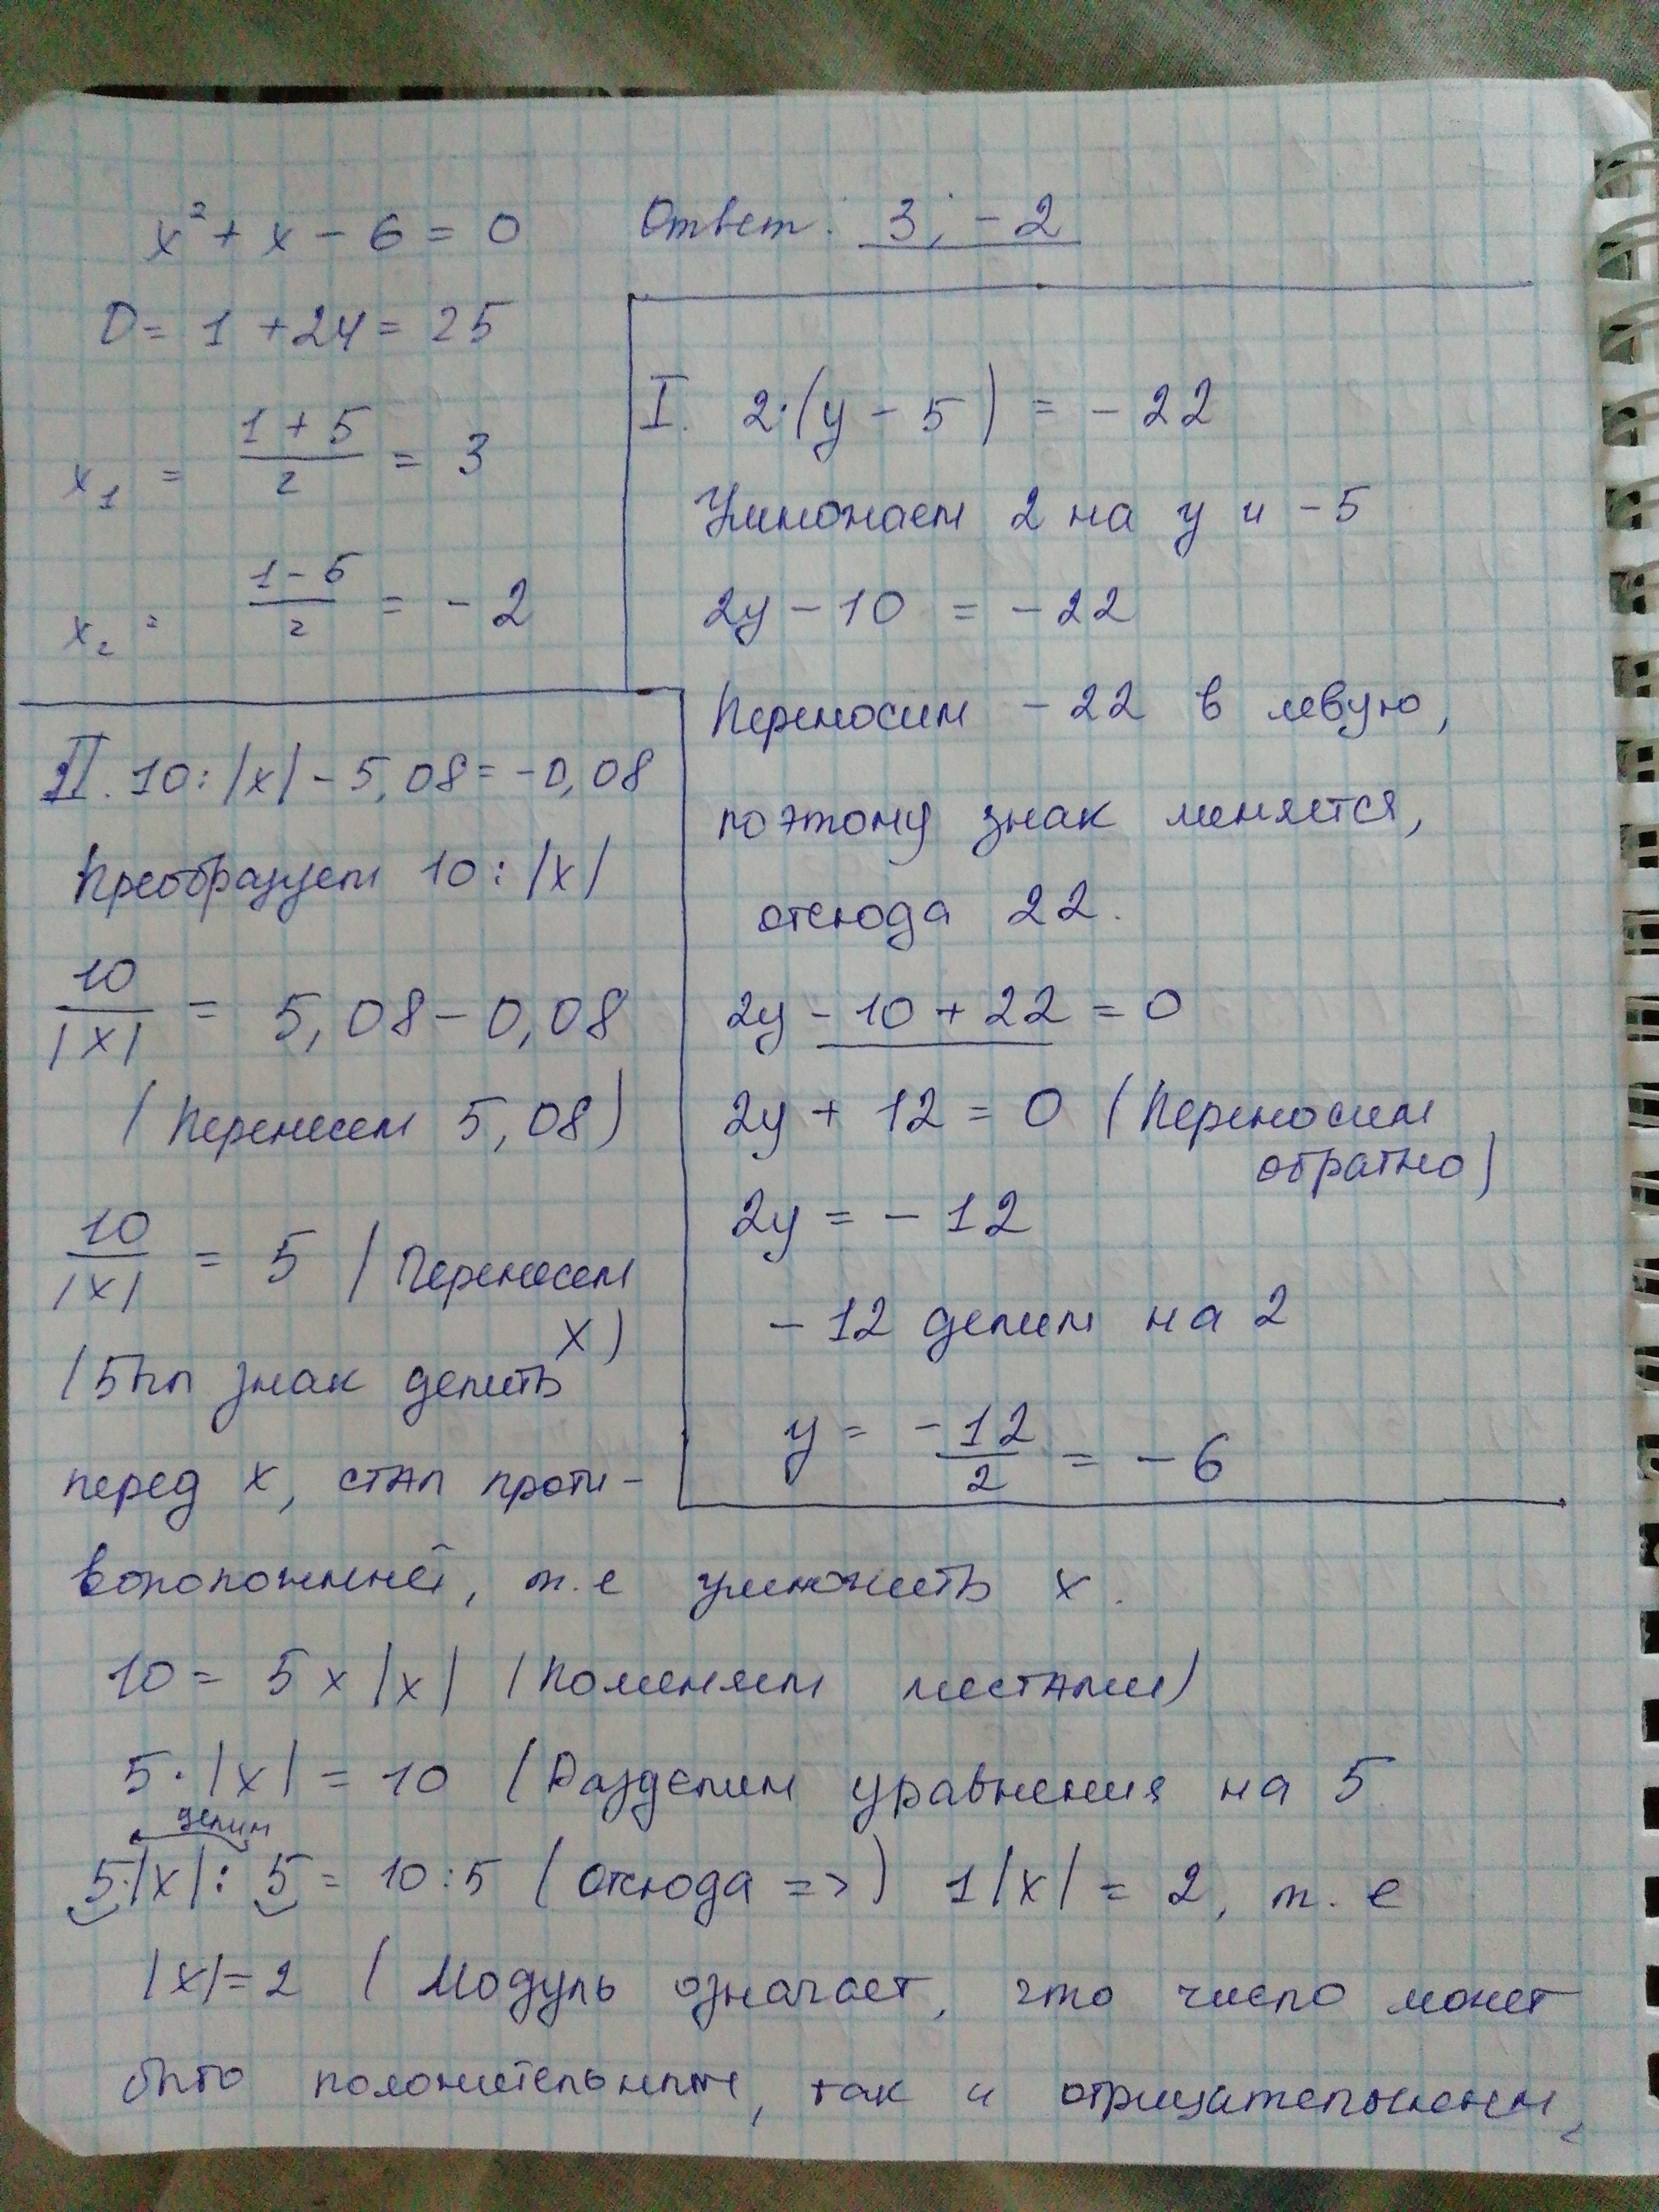 x² + x - 6 = 0
D = 1 + 24 = 25
x₁ = (1 + 5)/2 = 3
x₂ = (1 - 5)/2 = -2
Ответ: 3; -2
I. 2·(y - 5) = -22
Умножаем 2 на y и -5
2y - 10 = -22
Переносим -22 в левую,
поэтому знак меняется,
отсюда 22.
2y - 10 + 22 = 0
2y + 12 = 0 (Переносим
обратно)
2y = -12
-12 делим на 2
y = -12/2 = -6
II. 10:|x| - 5,08 = -0,08
Преобразуем 10:|x|
10/|x| = 5,08 - 0,08
(Перенесем 5,08)
10/|x| = 5 (Перенесем
x)
(Был знак делить
перед x, стал проти-
воположней, т.е умножить x.
10 = 5 x |x| (Поменяем местами)
5·|x| = 10 (Разделим уравнения на 5
делим
5·|x| : 5 = 10:5 (Отсюда =>) 1|x| = 2, т.е
|x| = 2 (Модуль означает, что число может
быто положительным, так и отрицательным,